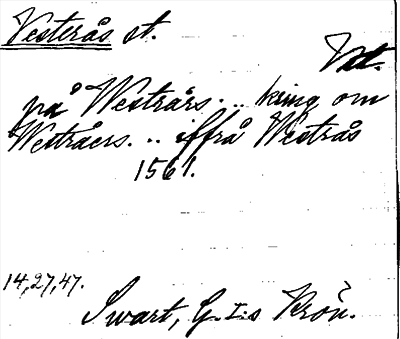 Vesterås st.
Vstl.
på Westrårs... kring om
Westråers... iffrå Westrås
1561.
14,27,47.
Swart, G.I:s Krön.